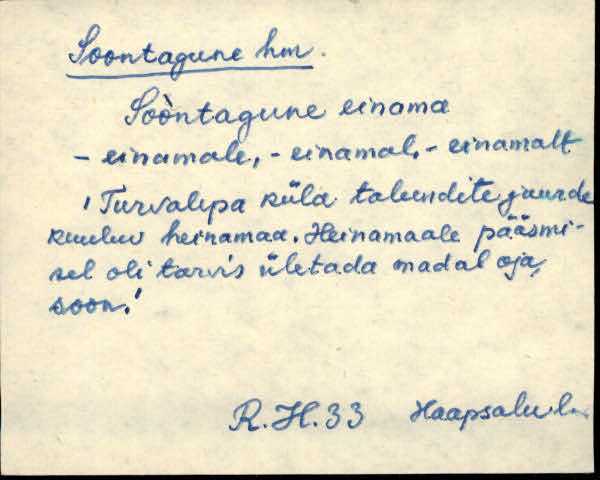 Soontagune hm.
Soòntagune einama
- einamale, - einamal, - einamalt
'Turvalepa küla taludite juurde
kuuluv heinamaa. Heinamaale pääsmi-
sel oli tarvis ületada madal oja,
soon.'
R.H.33 Haapsalu l.